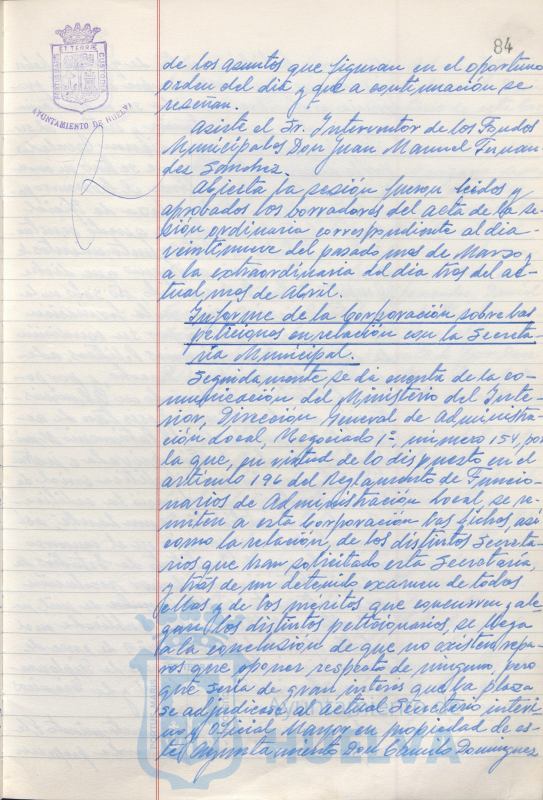 84
AYUNTAMIENTO DE HUELVA
de los asuntos que figuran en el oportuno
orden del día y que a continuación se
reseñan.
Asiste el Sr. Interventor de los Fondos
Municipales Don Juan Manuel Fernan-
dez Sánchez.
Abierta la sesión fueron leidos y
aprobados los borradores del acta de la se-
sión ordinaria correspondiente al dia
veintinueve del pasado mes de Marzo y
a la extraordinaria del dia tres del ac-
tual mes de Abril.
Informe de la Corporación sobre las
peticiones en relación con la Secreta-
ria Municipal.
Seguidamente se da cuenta de la co-
municación del Ministerio del Inte-
rior, Dirección General de Administra-
ción Local, Negociado 1º, número 154, por
la que, en virtud de lo dispuesto en el
artículo 196 del Reglamento de Funcio-
narios de Administración Local, se re-
miten a esta Corporación las fichas, así
como la relación, de los distintos Secreta-
rios que han solicitado esta Secretaría,
y tras de un detenido examen de todas
ellas y de los méritos que concurren y ale-
gan los distintos peticionarios, se llega
a la conclusión de que no existen repa-
ros que oponer respecto de ninguno, pero
que seria de gran interés que la plaza
se adjudicase al actual Secretario interi-
no y Oficial Mayor en propiedad de es-
te Ayuntamiento Don Camilo Dominguez
HUELVA